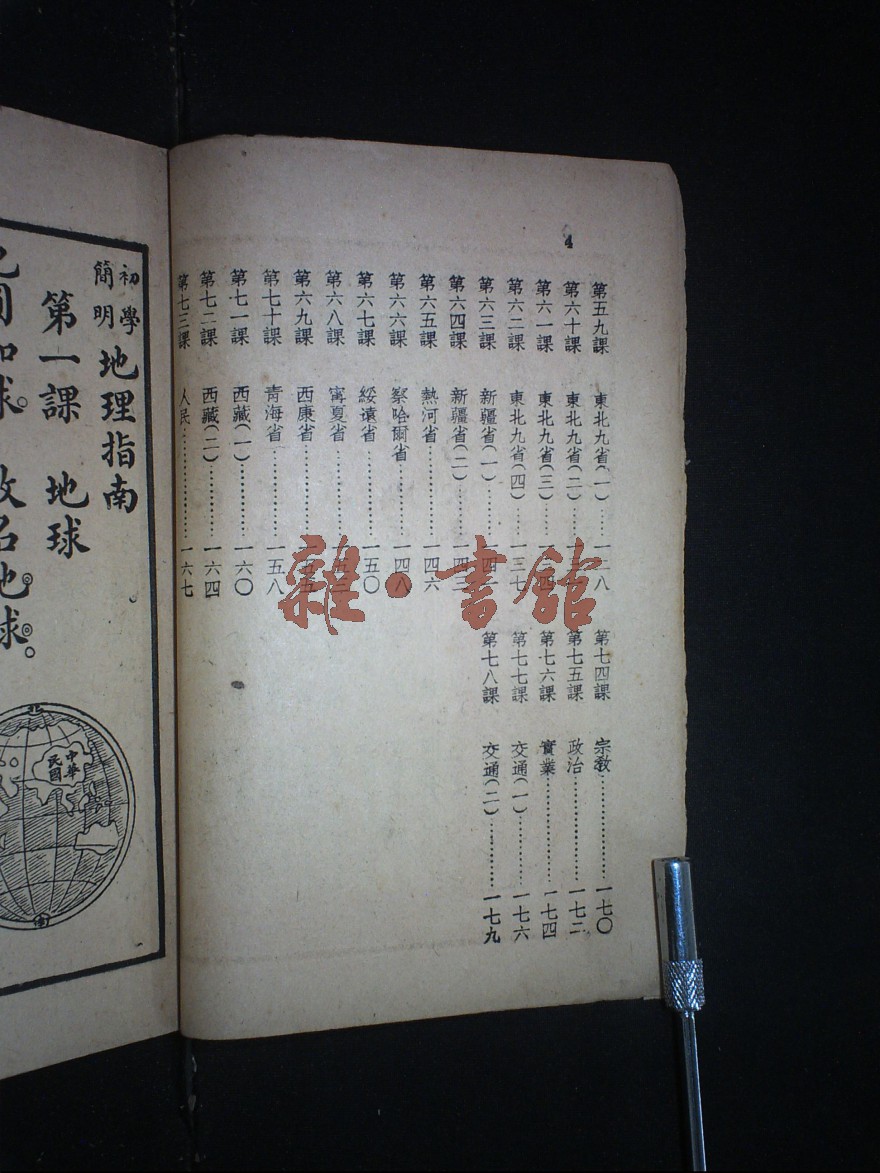 4
第五九課 東北九省(一)……一二八
第六十課 東北九省(二)……
第六一課 東北九省(三)……
第六二課 東北九省(四)……一三七
第六三課 新疆省(一)……
第六四課 新疆省(二)……
第六五課 熱河省……一四六
第六六課 察哈爾省……一四八
第六七課 綏遠省……一五〇
第六八課 寧夏省……
第六九課 西康省……
第七十課 青海省……一五八
第七一課 西藏(一)……一六〇
第七二課 西藏(二)……一六四
第七三課 人民……一六七
第七四課 宗教……一七〇
第七五課 政治……一七二
第七六課 實業……一七四
第七七課 交通(一)……一七六
第七八課 交通(二)……一七九
雜·書館
初學簡明地理指南
第一課 地球
球。故名地球。
北
中華民國
南